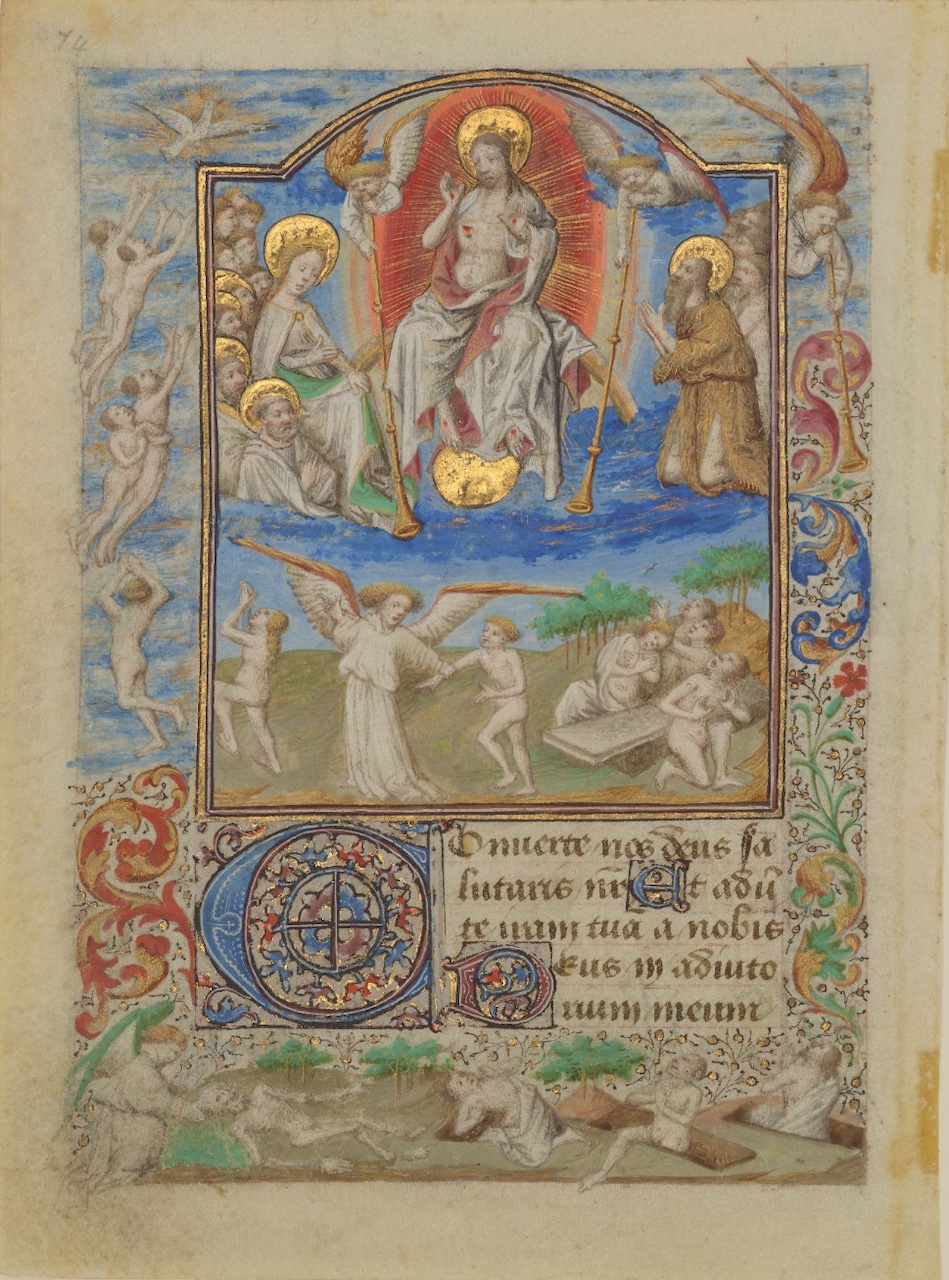 74
Conuerte nos deus sa
lutaris nr̄ Et adū
te iram tua a nobis
Deus in adiuto
rium meum